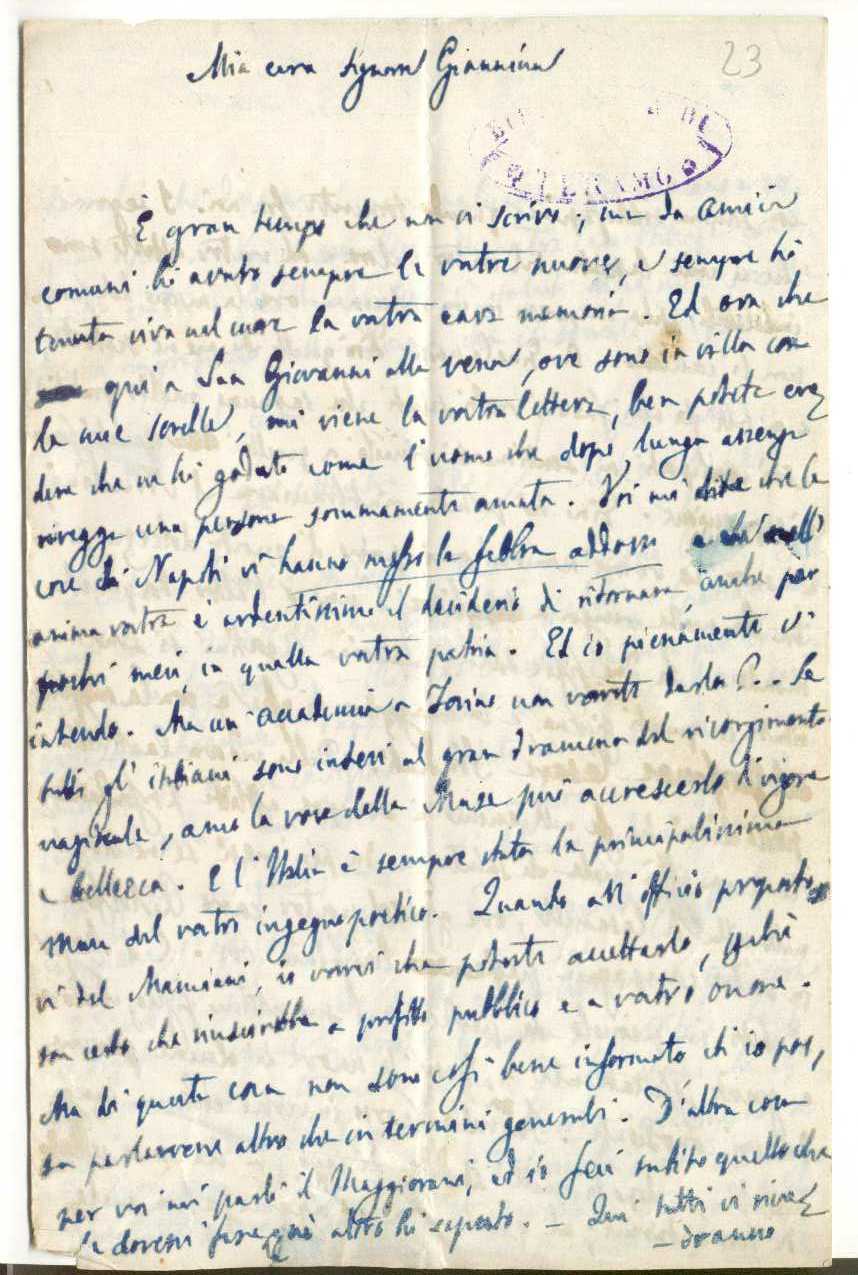 Mia cara Signora Giannina
23
TERAMO
È gran tempo che non vi scrivo; ma da amici
comuni hò avuto sempre le vostre nuove, e sempre hò
tenuta viva nel cuore la vostra cara memoria. Ed ora che
qui a San Giovanni alla vena, ove sono in villa con
le mie sorelle, mi viene la vostra lettera, ben potete cre
dere che ne hò goduto come l'uomo che dopo lunga assenza
rivegga una persona sommamente amata. Voi mi dite che le
cose di Napoli vi hanno messo la febbre addosso e che nell'
anima vostra è ardentissimo il desiderio di ritornare, anche per
pochi mesi, in quella vostra patria. Ed io pienamente v'
intendo. Ma un'accademia a Torino non vorreste darla?.. Se
tutti gl'italiani sono intesi al gran dramma del risorgimento
nazionale, anco la voce della Musa può accrescerlo di vigore
e bellezza. E l'Italia è sempre stata la principalissima
Musa del vostro ingegno poetico. Quando all'officio proposto
vi dal Mamiani, io vorrei che poteste accettarlo,
son certo che riuscirebbe a profitto pubblico e a vostro onore.
Ma di questa cosa non sono così bene informato ch'io pos,
sa parlarvene altro che in termini generali. D'altra cosa
per voi mi parlò il Maggiorani, ed io feci subito quello che
dovessi fare, nè altro hò saputo. – Qui tutti vi rive
– dranno